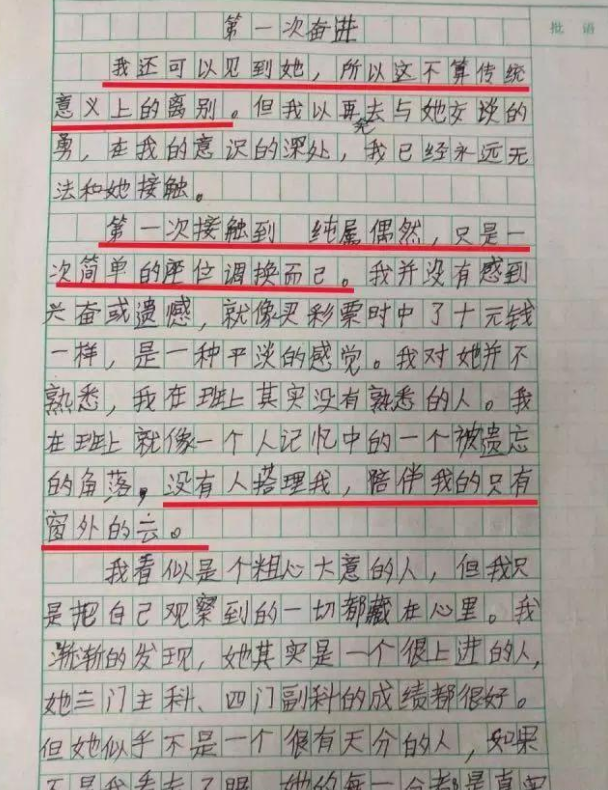 第一次奋进
批语
我还可以见到她，所以这不算传统
意义上的离别。但我以再去与她交谈的
死
勇，在我的意识的深处，我已经永远无
法和她接触。
第一次接触到 纯属偶然，只是一
次简单的座位调换而已。我并没有感到
兴奋或遗憾，就像买彩票时中了十元钱
一样，是一种平淡的感觉。我对她并不
熟悉，我在班上其实没有熟悉的人。我
在班上就像一个人记忆中的一个被遗忘
的角落，没有人搭理我，陪伴我的只有
窗外的云。
我看似是个粗心大意的人，但我只
是把自己观察到的一切都藏在心里。我
渐渐的发现，她其实是一个很上进的人，
她三门主科、四门副科的成绩都很好。
但她似乎不是一个很有天分的人，如果
不是我看走了眼，她的每一分都是真实